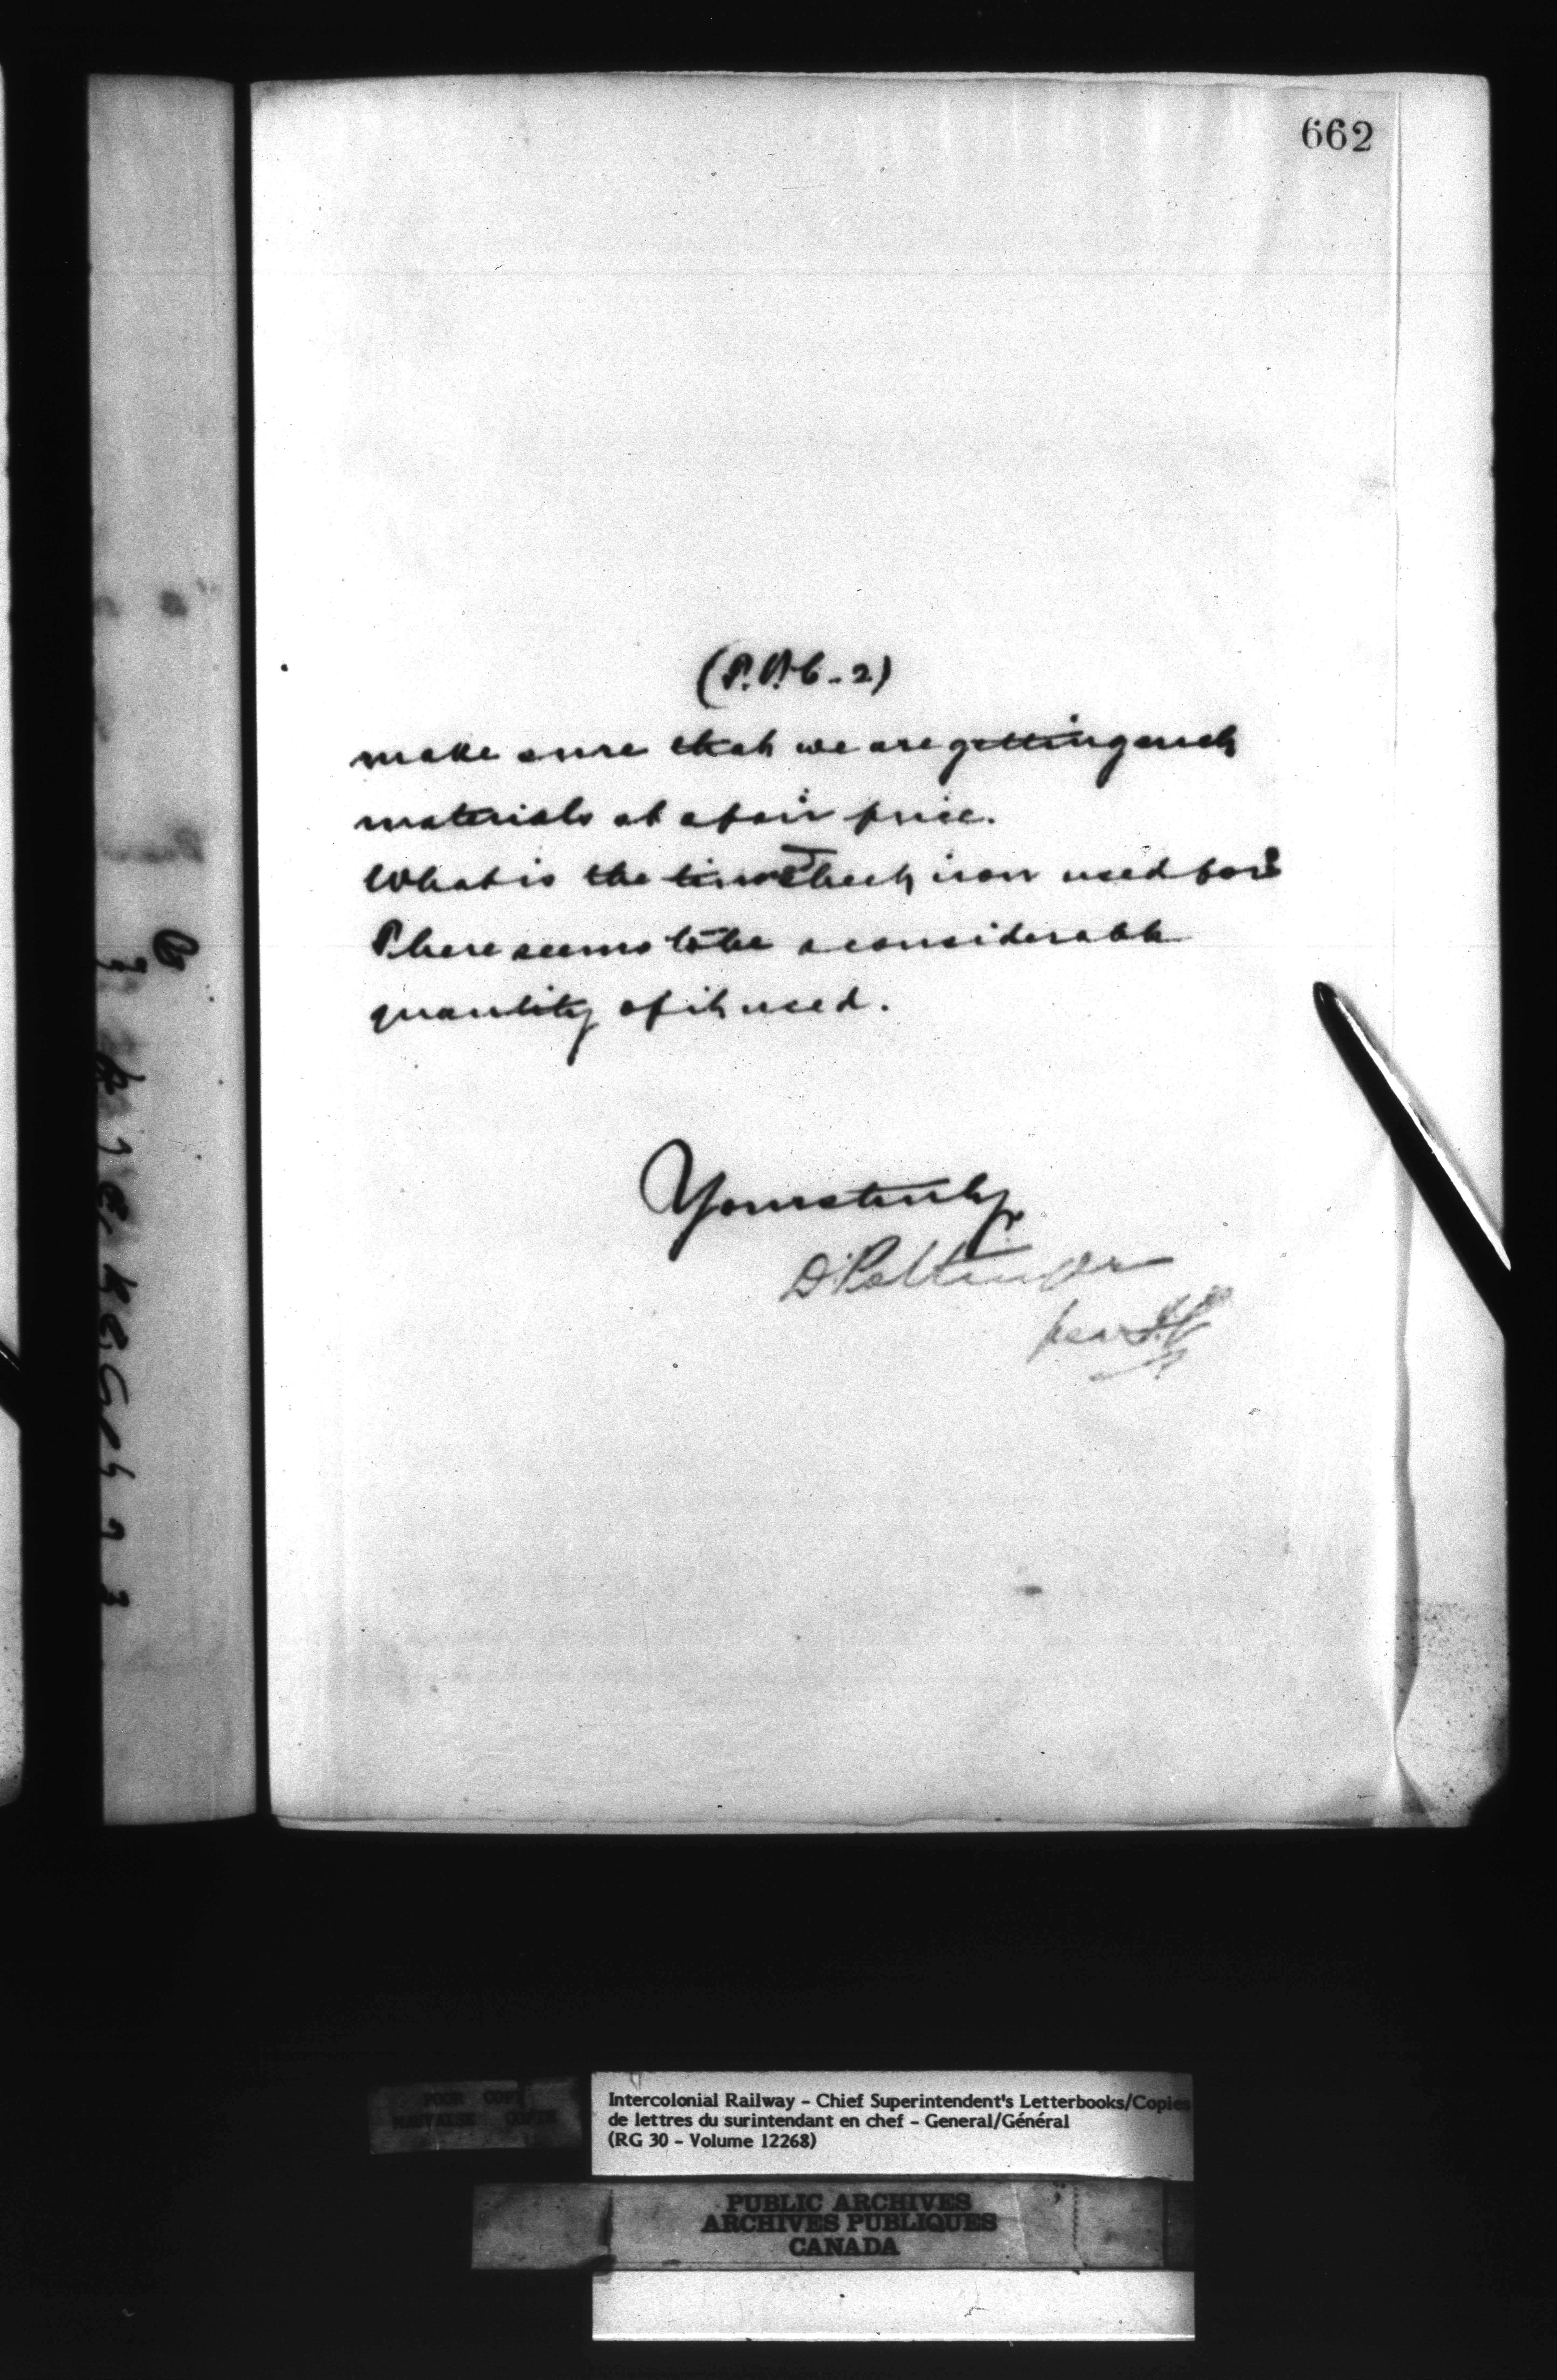 662
(P.P.C. - 2)
make sure that we are getting such
materials at a fair price.
What is the tin sheet iron used for?
There seems to be a considerable
quantity of it used.
Yours truly,
D Pottinger
per
Intercolonial Railway - Chief Superintendent's Letterbooks/Copies
de lettres du surintendant en chef - General/Général
(RG 30 - Volume 12268)
POOR COPY
MAUVAISE COPIE
PUBLIC ARCHIVES
ARCHIVES PUBLIQUES
CANADA